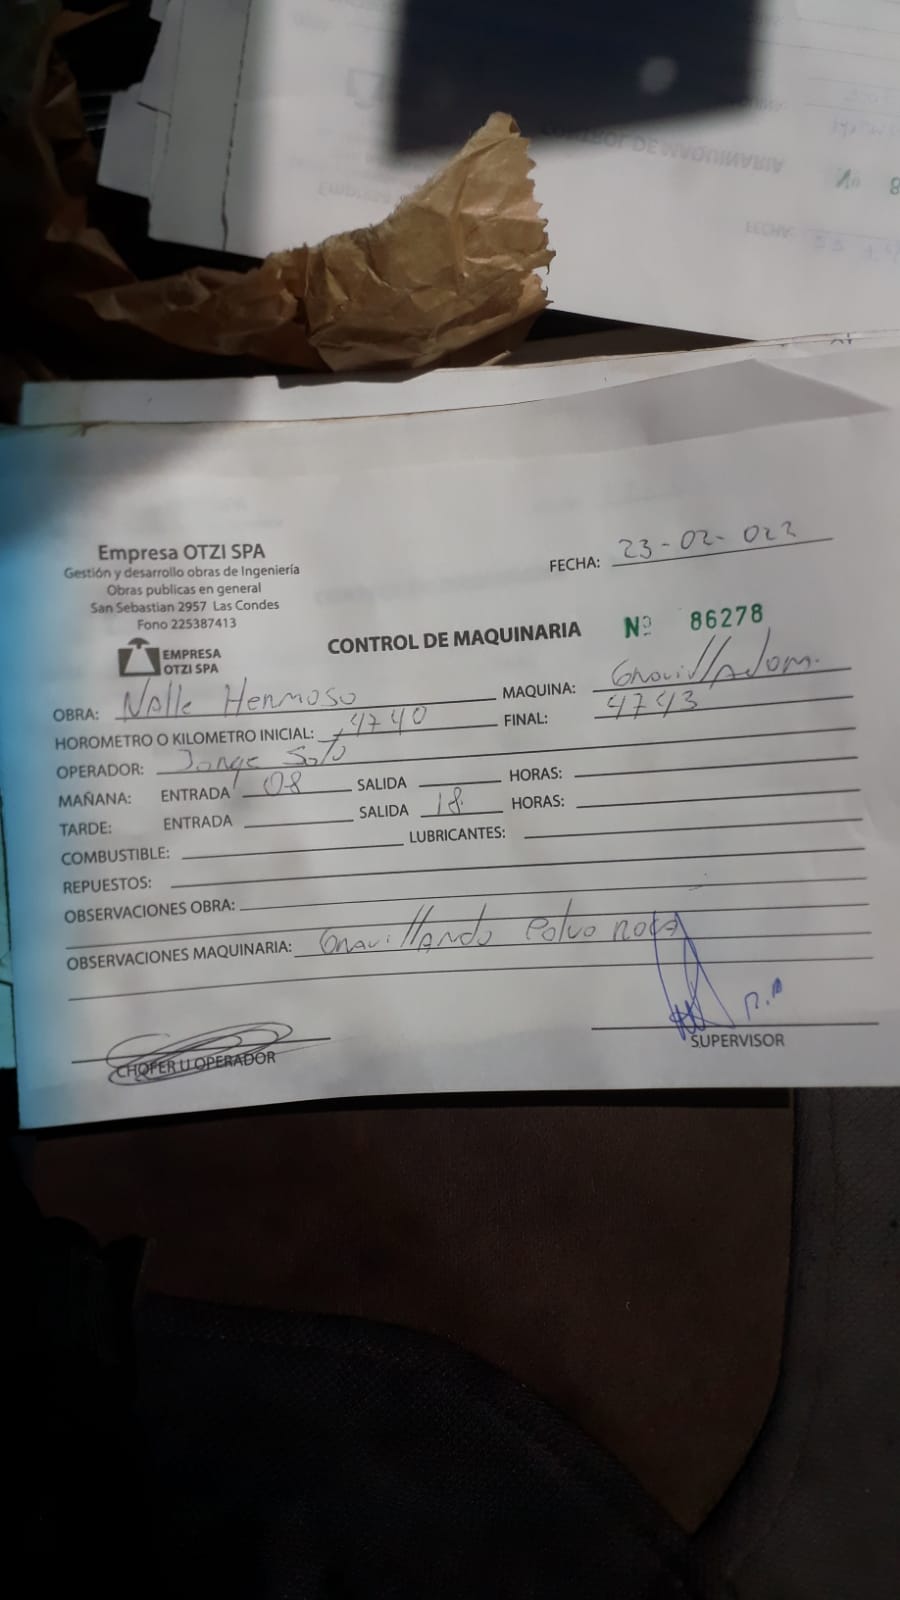 CONTROL DE MAQUINARIA
Nº 8
FECHA:
Empresa OTZI SPA
Gestión y desarrollo obras de Ingeniería
Obras publicas en general
San Sebastian 2957 Las Condes
Fono 225387413
EMPRESA
OTZI SPA
FECHA: 23-02-022
CONTROL DE MAQUINARIA Nº 86278
OBRA: Valle Hermoso MAQUINA: Gravilladom.
HOROMETRO O KILOMETRO INICIAL: 4740 FINAL: 4743
OPERADOR: Jorge Soto
MAÑANA: ENTRADA 08 SALIDA HORAS:
TARDE: ENTRADA SALIDA 18 HORAS:
COMBUSTIBLE: LUBRICANTES:
REPUESTOS:
OBSERVACIONES OBRA:
OBSERVACIONES MAQUINARIA: Gravillando Polvo roca
CHOFER U OPERADOR
SUPERVISOR